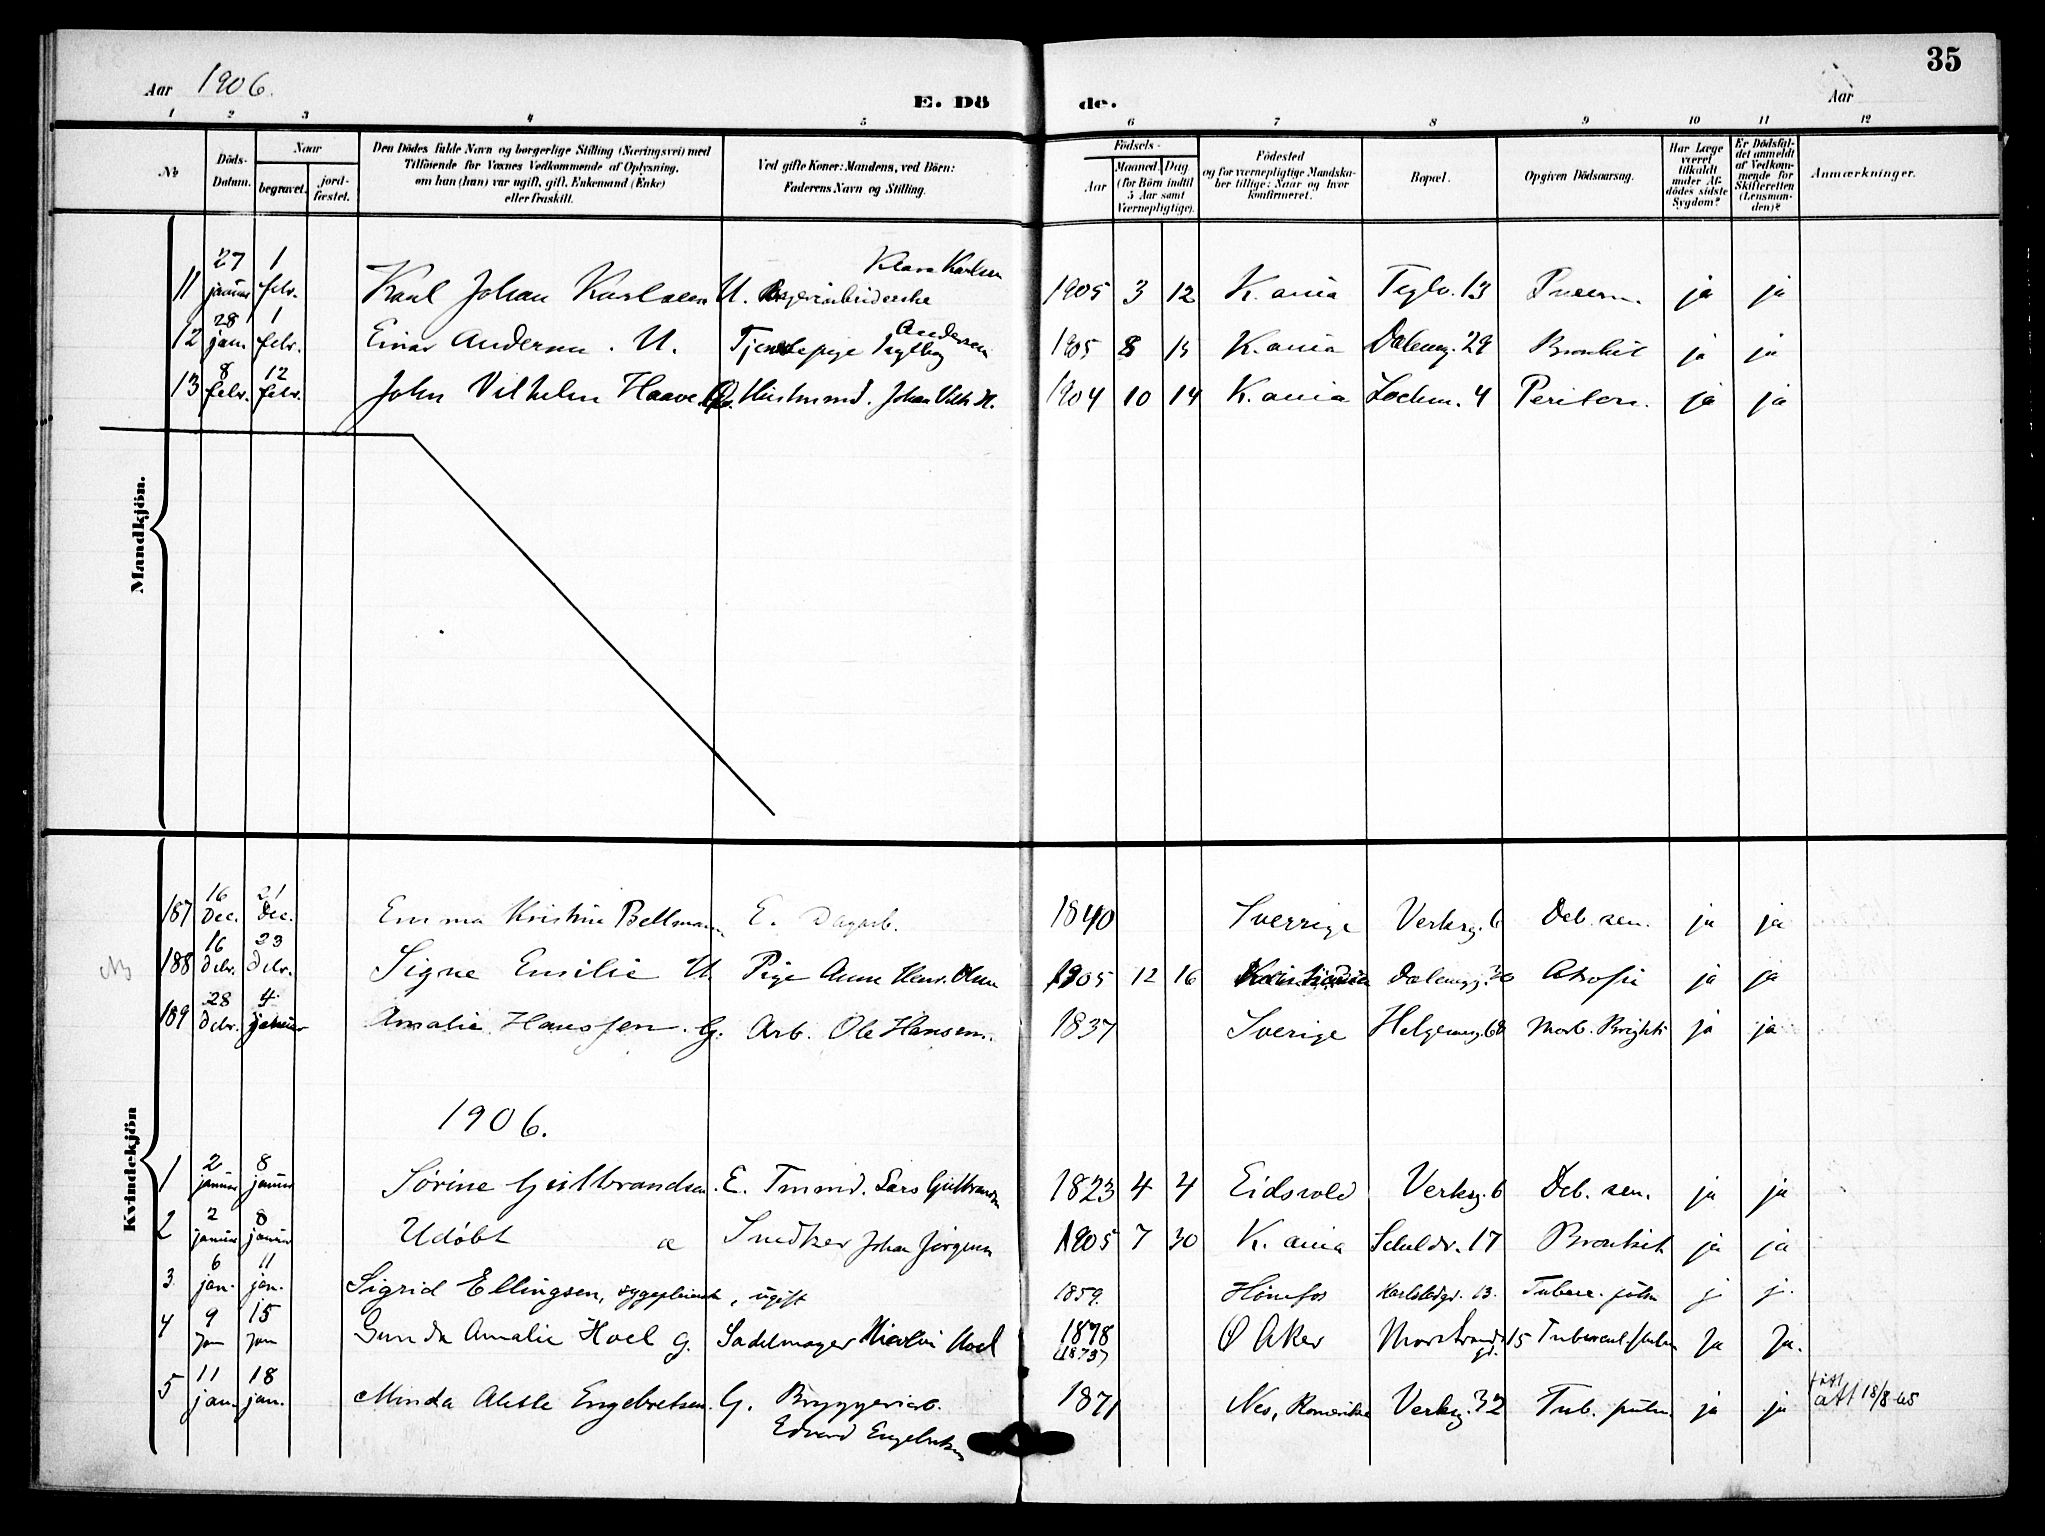 35
Aar 1906.
E. Dö de.
Aar
1 2 3 4 5 6 7 8 9 10 11 12
No
Döds-Datum.
Naar
begravet.
jord-fæstet.
Den Dödes fulde Navn og borgerlige Stilling (Næringsvei) med
Tilföiende for Voxnes Vedkommende af Oplysning,
om han (hun) var ugift, gift, Enkemand (Enke)
eller fraskilt.
Ved gifte Koner: Mandens, ved Börn:
Faderens Navn og Stilling.
Födsels-
Aar
Maaned. Dag
(for Börn indtil
5 Aar samt
Værnepligtige).
Födested
og for værnepligtige Mandska-
ber tillige: Naar og hvor
konfirmeret.
Bopæl.
Opgiven Dödsaarsag.
Har Læge
været
tilkaldt
under Af-
dödes sidste
Sygdom?
Er Dödsfal-
det anmeldt
af Vedkom-
mende for
Skifteretten
(Lensman-
den)?
Anmærkninger.
Mandkjön.
11 27 januar 1 febr. Karl Johan Karlsen U. Klara Karlsen 1905 3 12 K.ania Teglv. 13 Pneum. ja ja
12 28 jan. 1 febr. Einar Andersen. U. Tjenestepige Andersen 1905 8 K.ania Dalensg. 29 Bronkit ja ja
13 8 febr. 12 febr. John Vilhelm Haave Johan Vilh H. 1904 10 14 K.ania 4 ja ja
Kvindekjön
187 16 Dec. 21 Dec. Emma Kristine Bellmann E. Dagarb. 1840 Sverrige Verksg. 6 Deb. sen. ja ja
188 16 debr. 23 debr. Signe Emilie U. Pige Anna Henr. Olsen 1905 12 16 Kristiania Dalensg. 30 Atrofi ja ja
189 28 debr. 4 januar Amalie Hanssen. G. Arb. Ole Hansen. 1837 Sverige Helgensg. 68 Morb. Brighti ja ja
1906.
1 2 januar 8 januar Sörine Gulbrandsen. E. Tmmd. Lars Gulbrandsen 1823 4 4 Eidsvold Verksg. 6 Deb. sen. ja ja
2 2 januar 8 januar Udöbt a Snedker Johan Jörgensen 1905 7 30 K.ania 17 Bronkit ja ja
3 6 jan. 11 jan. Sigrid Ellingsen, sygepleierske, ugift 1859. Hönefos 13. Tuberc. pulm j j.
4 9 jan 15 jan Gunda Amalie Hoel g. Sadelmager Hoel 1878 (1873) Ö Aker 15 Tubercul. pulm Ja Ja.
5 11 jan. 18 jan. Minda Alette Engebretsen. G. Bryggeriarb. 1871 Nes, Romerike Verksg. 32 Tub. pulm. ja ja att 18/8-65
Edvard Engebretsen